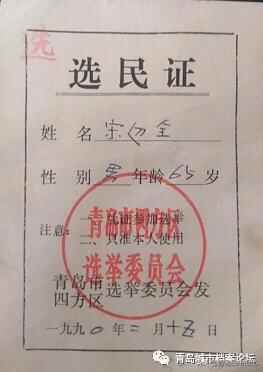 选
选民证
姓名 宋以全
性别 男 年龄 65 岁
注意：
一、凭证参加选举
二、只准本人使用
青岛市四方区
选举委员会
青岛市四方区选举委员会发
一九九〇年二月十五日
青岛城市档案论坛